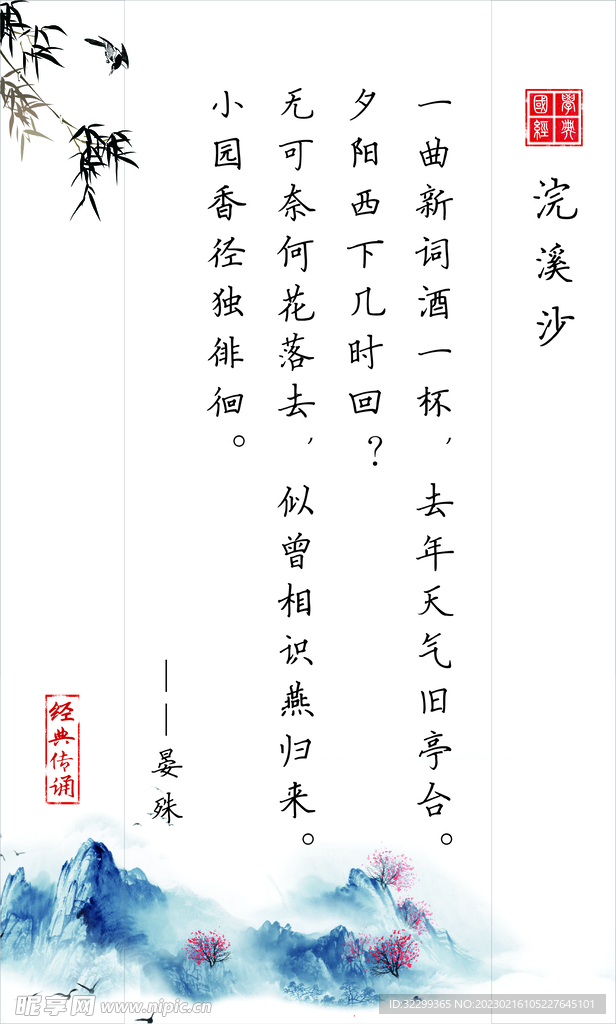 國學經典
浣溪沙
一曲新词酒一杯，去年天气旧亭台。
夕阳西下几时回？
无可奈何花落去，似曾相识燕归来。
小园香径独徘徊。
——晏殊
经典传诵
昵享网 www.nipic.cn
ID:32299365 NO:20230216105227645101